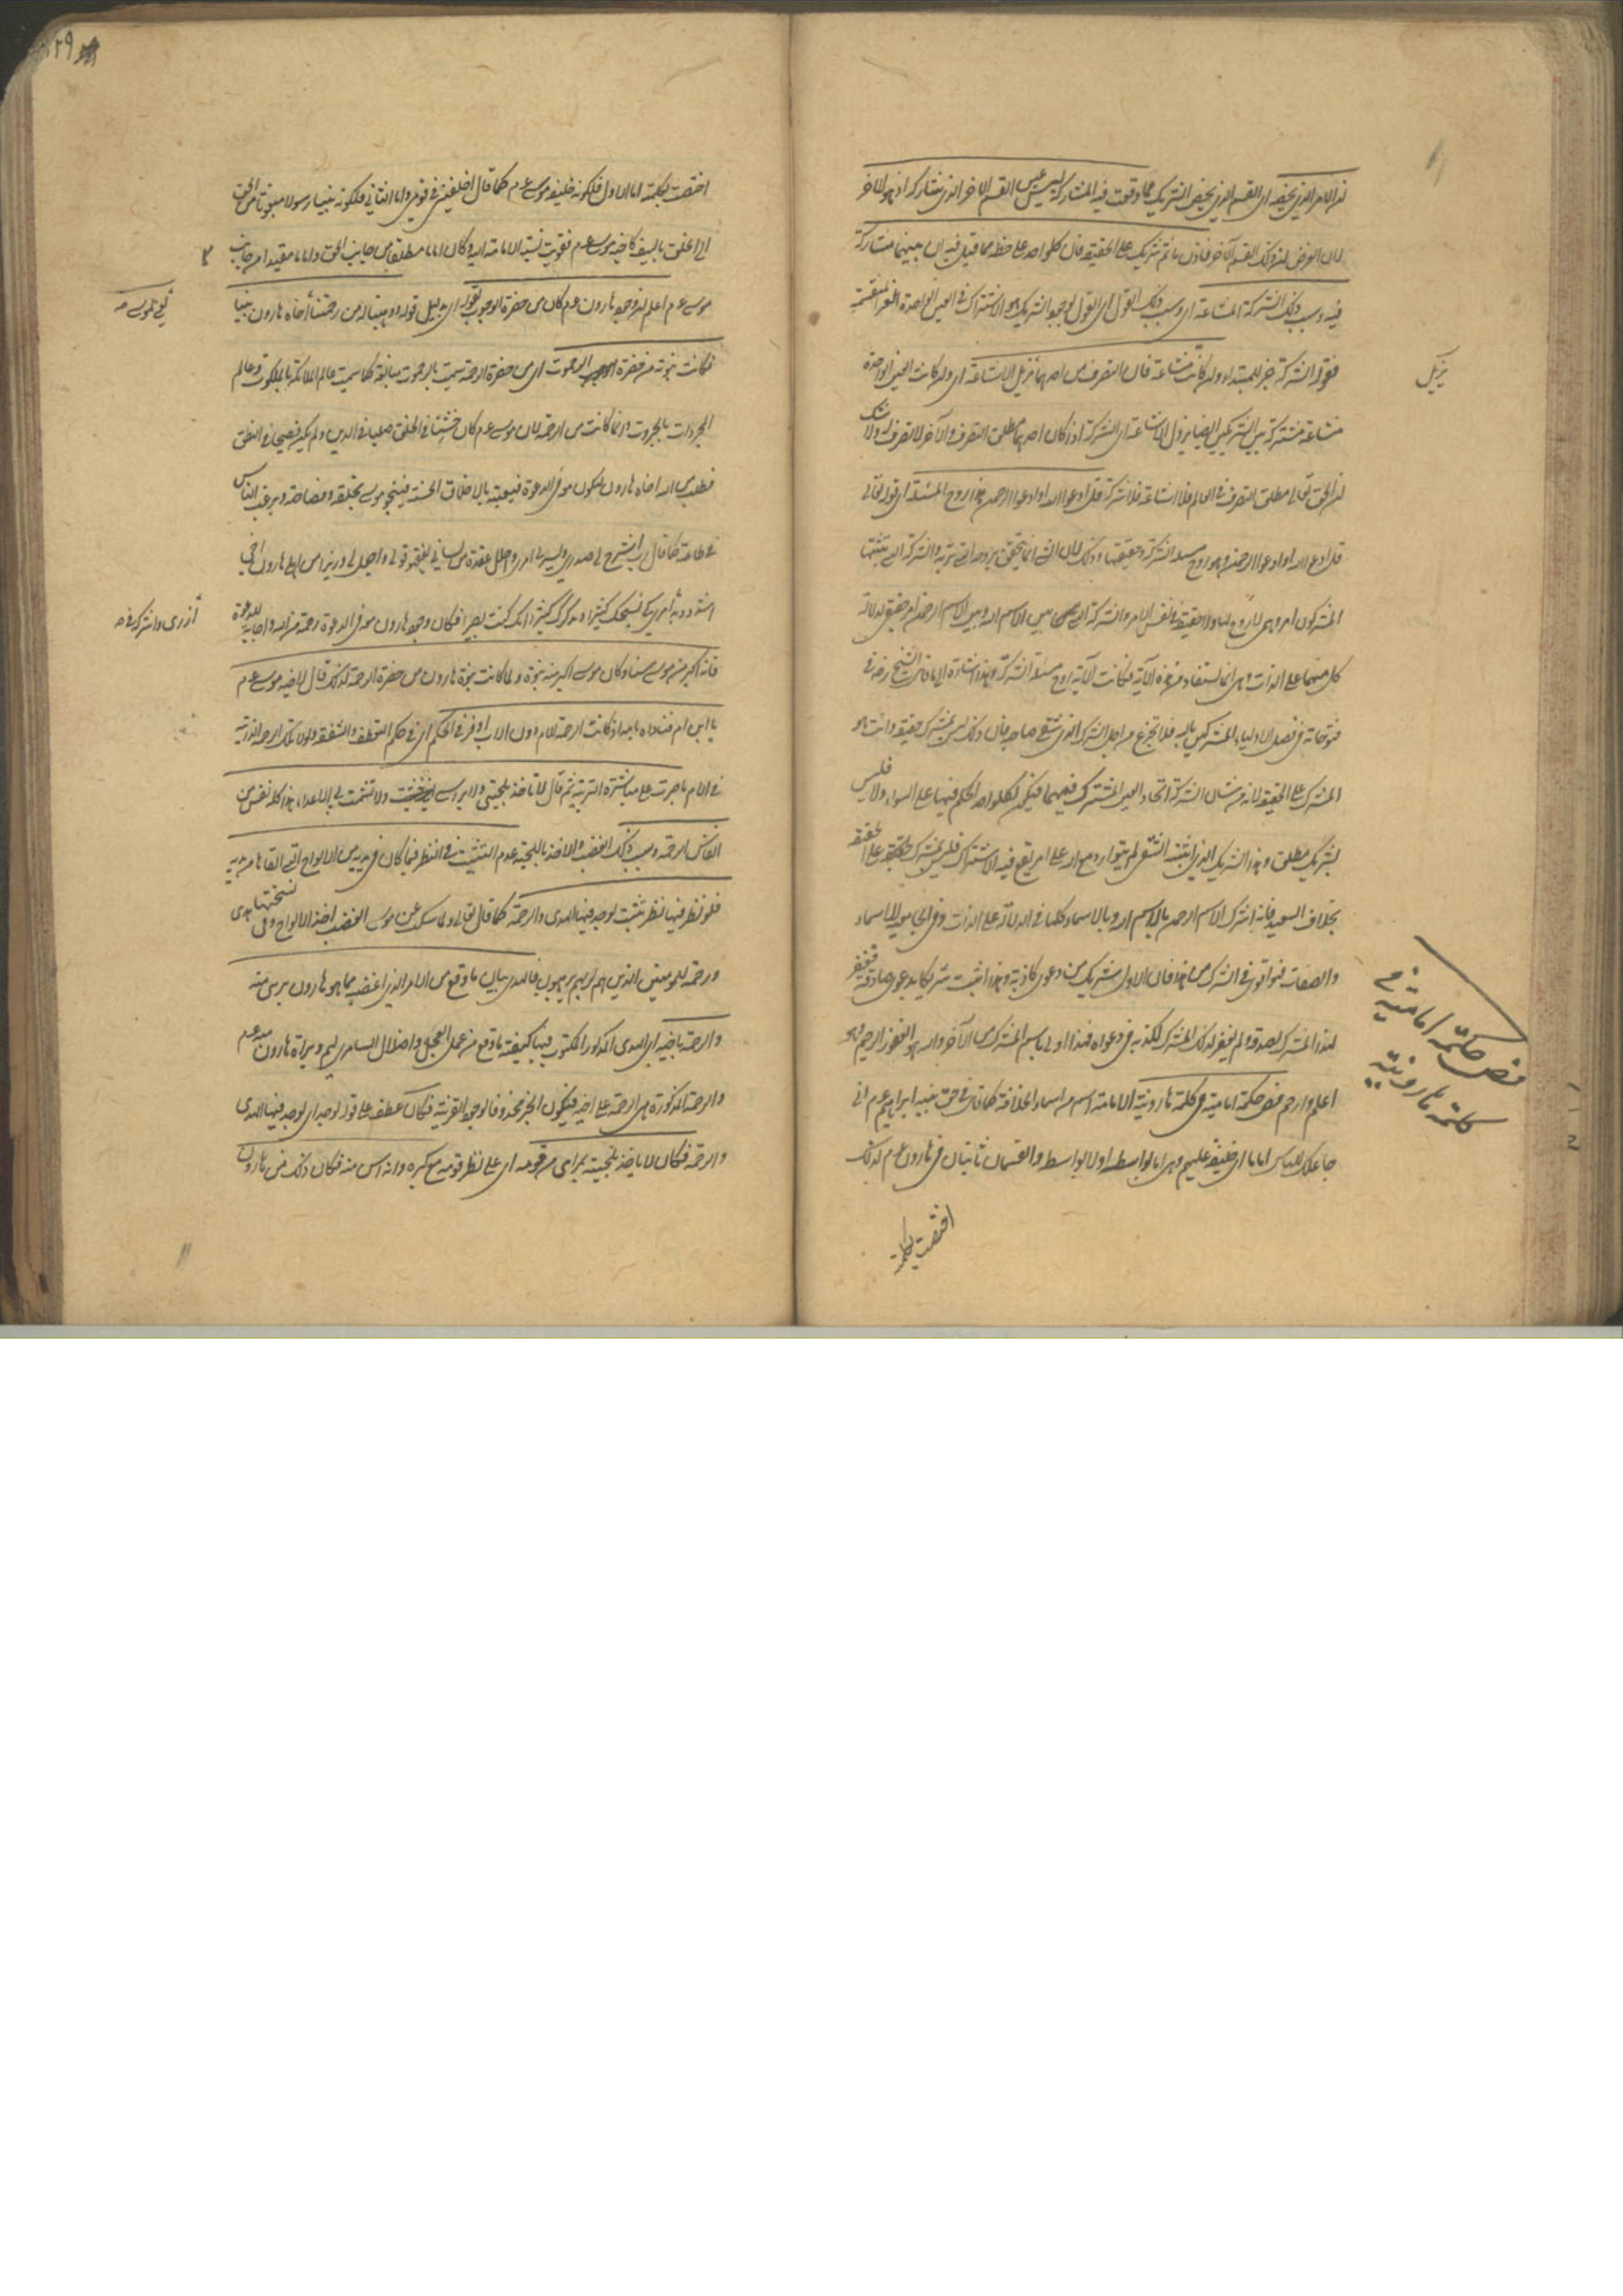 ان الامر الذي يخصه اي القسم الذي يخص الشريك مما وقعت فيه المشاركة ليس عين القسم الآخر الذي شاركه اذ هو للآخر
لان الفرض ان ذلك القسم للآخر فاذن ما ثم شريك على الحقيقة فان كل واحد على حظه مما قيل فيه ان بينهما مشاركة
فيه وسبب ذلك الشركة المشاعة اي وسبب ذلك القول اي القول بوجود الشريك هو الاشتراك في العين الواحدة الغير المنقسمة
فقوله الشركة خبر للمبتداء وان كانت مشاعة فان التصريف من احدهما يزيل الاشاعة اي وان كانت العين الواحدة
يزيل
مشاعة مشتركة بين الشريكين ايضا يزول الاشاعة اي الشركة اذا كان احدهما مطلق التصرف والآخر لا تصرف له ولا شك
ان الحق تعالى مطلق التصرف في العالم فلا اشاعة فلا شركة قل ادعوا الله او ادعوا الرحمن هذا روح المسئلة اي قوله تعالى
قل ادعوا الله او ادعوا الرحمن هو روح مسئلة الشركة وحقيقتها وذلك لان الشئ انما يتحقق بروحه الشركة التي يثبتها
المشركون امر وهمي لا روح لها ولا حقيقة في نفس الامر والشركة التي هي بين الاسم الله وبين الاسم الرحمن امر حقيقي لدلالة
كل منهما على الذات وهي انما تستفاد من هذه الآية فكانت الآية روح مسئلة الشركة وهذا اشارة الى ما قال الشيخ رضه في
فتوحاته في فصل الاولياء المشركين بالله فلا تجزع من اجل الشرك الذي شقي صاحبه فان ذلك ليس بمشرك حقيقة وانت هو
المشرك على الحقيقة لانه من شان الشركة اتحاد العين المشترك فيهما فيكون لكل واحد الحكم فيها على السواء والا فليس
بشريك مطلق وهذا الشريك الذي اثبته الشقي لم يتوارد مع الله على امر يقع فيه الاشتراك فليس بمشرك على الحقيقة
بخلاف السعيد فانه اشرك الاسم الرحمن بالاسم الله وبالاسماء كلها في الدلالة على الذات
والصفات فهو اقوى في الشرك من هذا فان الاول شريك من دعوى كاذبة وهذا اثبت شريكا بدعوى صادقة فغفر
لهذا المشرك لصدقه ولم يغفر لذلك المشرك لكذبه في دعواه فهذا اولى باسم المشرك من الآخر والله هو الغفور الرحيم وهو
اعلم وارحم فص حكمة امامية في كلمة هارونية الامامة اسم من اسماء الخلافة كما قال في حق نبيه ابراهيم عم اني
فص حكمة امامية في
كلمة هارونية
جاعلك للناس اماما اي خليفة عليهم وهي اما بواسطة او لا بواسطة والقسمان ثابتان في هارون عم لذلك
اختصت بكلمة
٢٩
اختصت بكلمته اما الاول فلكونه خليفة موسى عم كما قال اخلفني في قومي واما الثاني فلكونه نبيا رسولا مبعوثا من الحق
الى الخلق بالسيف كاخيه موسى عم فقويت نسبة الامامة اليه وكان اماما مطلقا من جانب الحق واماما مقيدا من جانب
موسى عم اعلم ان وجود هارون عم كان من حضرة الرحموت بقوله اي بدليل قوله ووهبنا له من رحمتنا اخاه هارون نبيا
يعني لموسى
فكانت نبوته من حضرة الرحموت اي من حضرة الرحمة سميت بالرحموت مبالغة كما سميت عالم الملائكة بالملكوت وعالم
المجردات بالجبروت وانما كانت من الرحمة لان موسى عم كان خشنا في الخلق صلبا في الدين ولم يكن فصيحا في النطق
فطلب من الله اخاه هارون ليكون معه في الدعوة فيعينه بالاخلاق الحسنة فينجو موسى بخلقه وفصاحته ويرغب الناس
في طاعته كما قال رب اشرح لي صدري ويسر لي امري واحلل عقدة من لساني يفقهوا قولي واجعل لي وزيرا من اهلي هارون اخي
اشدد به أزري كي نسبحك كثيرا ونذكرك كثيرا انك كنت بصيرا فكان وجود هارون معه في الدعوة رحمة من الله واجابة للدعوة
أزري واشركه في
فانه اكبر من موسى سنا وكان موسى اكبر منه نبوة ولما كانت نبوة هارون من حضرة الرحمة لذلك قال لاخيه موسى عم
يا ابن ام فناداه بامه اذ كانت الرحمة للام دون الاب اوفر في الحكم اي في حكم التعطف والشفقة ولولا تلك الرحمة الذاتية
في الام ما صبرت على مباشرة التربية ثم قال لا تاخذ بلحيتي ولا براسي ولا تشمت بي الاعداء هذا كله نفس من
انفاس الرحمة وسبب ذلك الغضب والاخذ باللحية عدم التثبت في النظر فيما كان في يديه من الالواح التي القاها من يديه
فلو نظر فيها نظر تثبت لوجد فيها الهدى والرحمة كما قال تعالى ولما سكت عن موسى الغضب اخذ الالواح وفي نسختها هدى
ورحمة للمؤمنين الذين هم لربهم يرهبون فالهدى بيان ما وقع من الامر الذي اغضبه مما هو هارون برئ منه
والرحمة باخيه اي الهدى المذكور المكتوب فيها كيفية ما وقع من عمل العجل واضلال السامري لهم وبراة هارون منه عم
والرحمة المذكورة هي الرحمة على اخيه فيكون الخبر محذوفا لوجود القرينة فكان عطف على قوله لوجد اي لوجد فيها الهدى
والرحمة فكان لا ياخذ بلحيته بمراى من قومه اي على نظر قومه مع كبره وانه اسن منه فكان ذلك من هارون